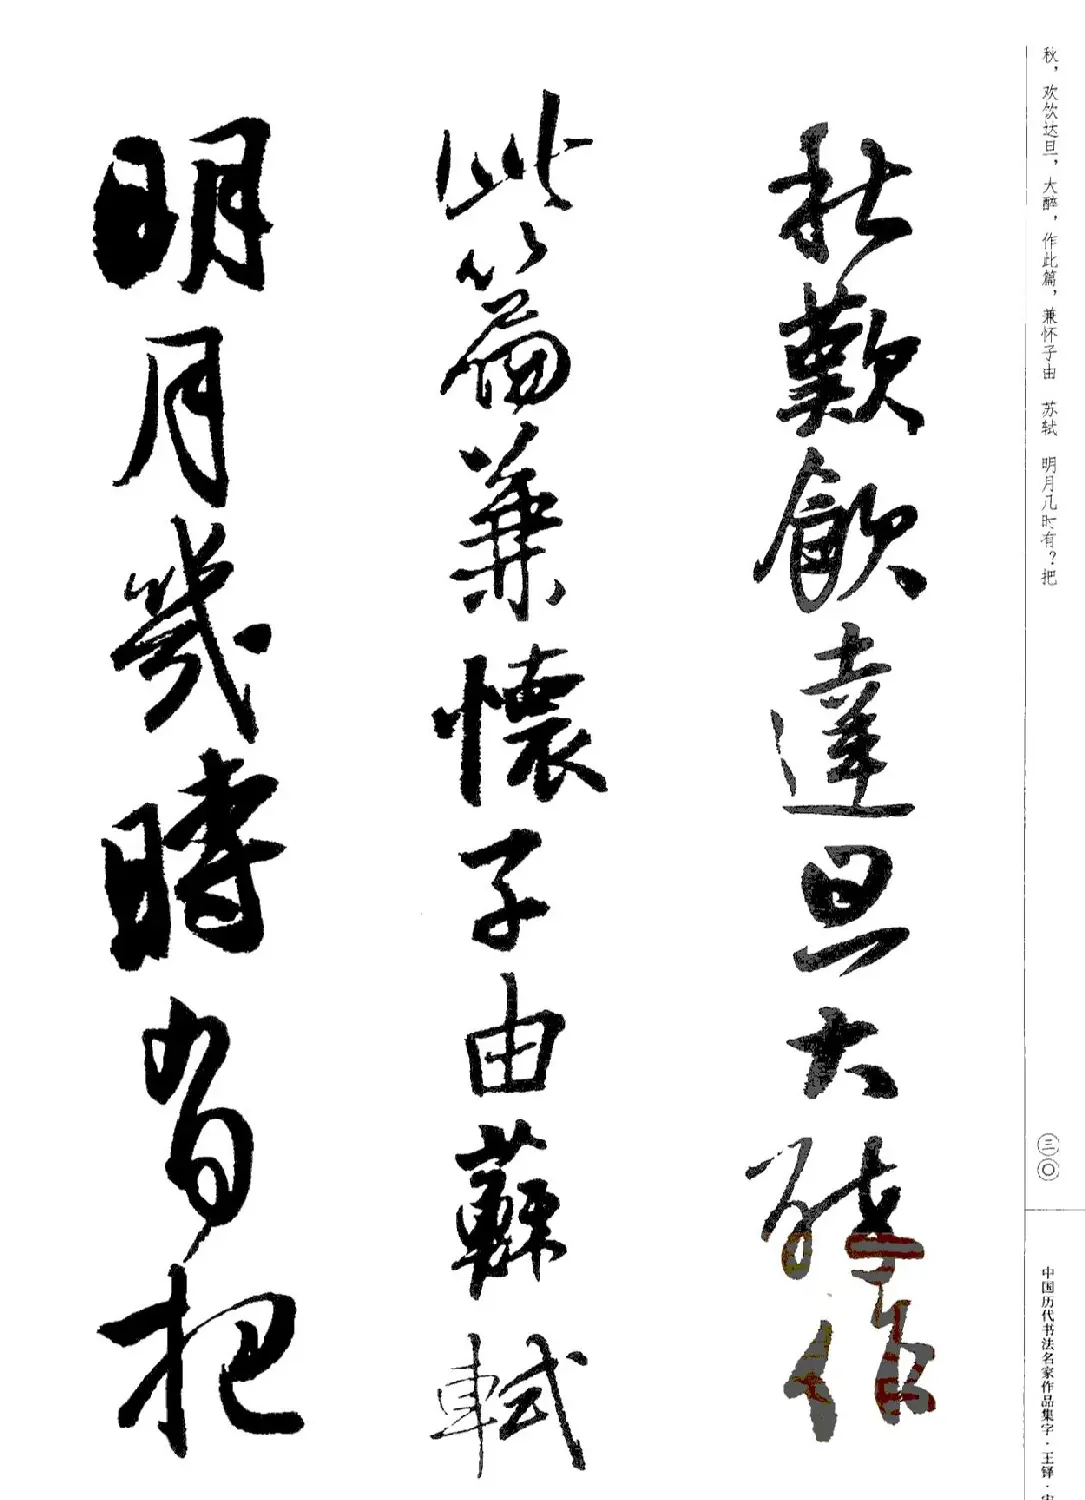 秋，欢饮达旦，大醉，作此篇，兼怀子由　苏轼　明月几时有？把
三〇
中国历代书法名家作品集字·王铎·宋
秋歡飲達旦大醉作
此篇兼懷子由蘇軾
明月幾時有把